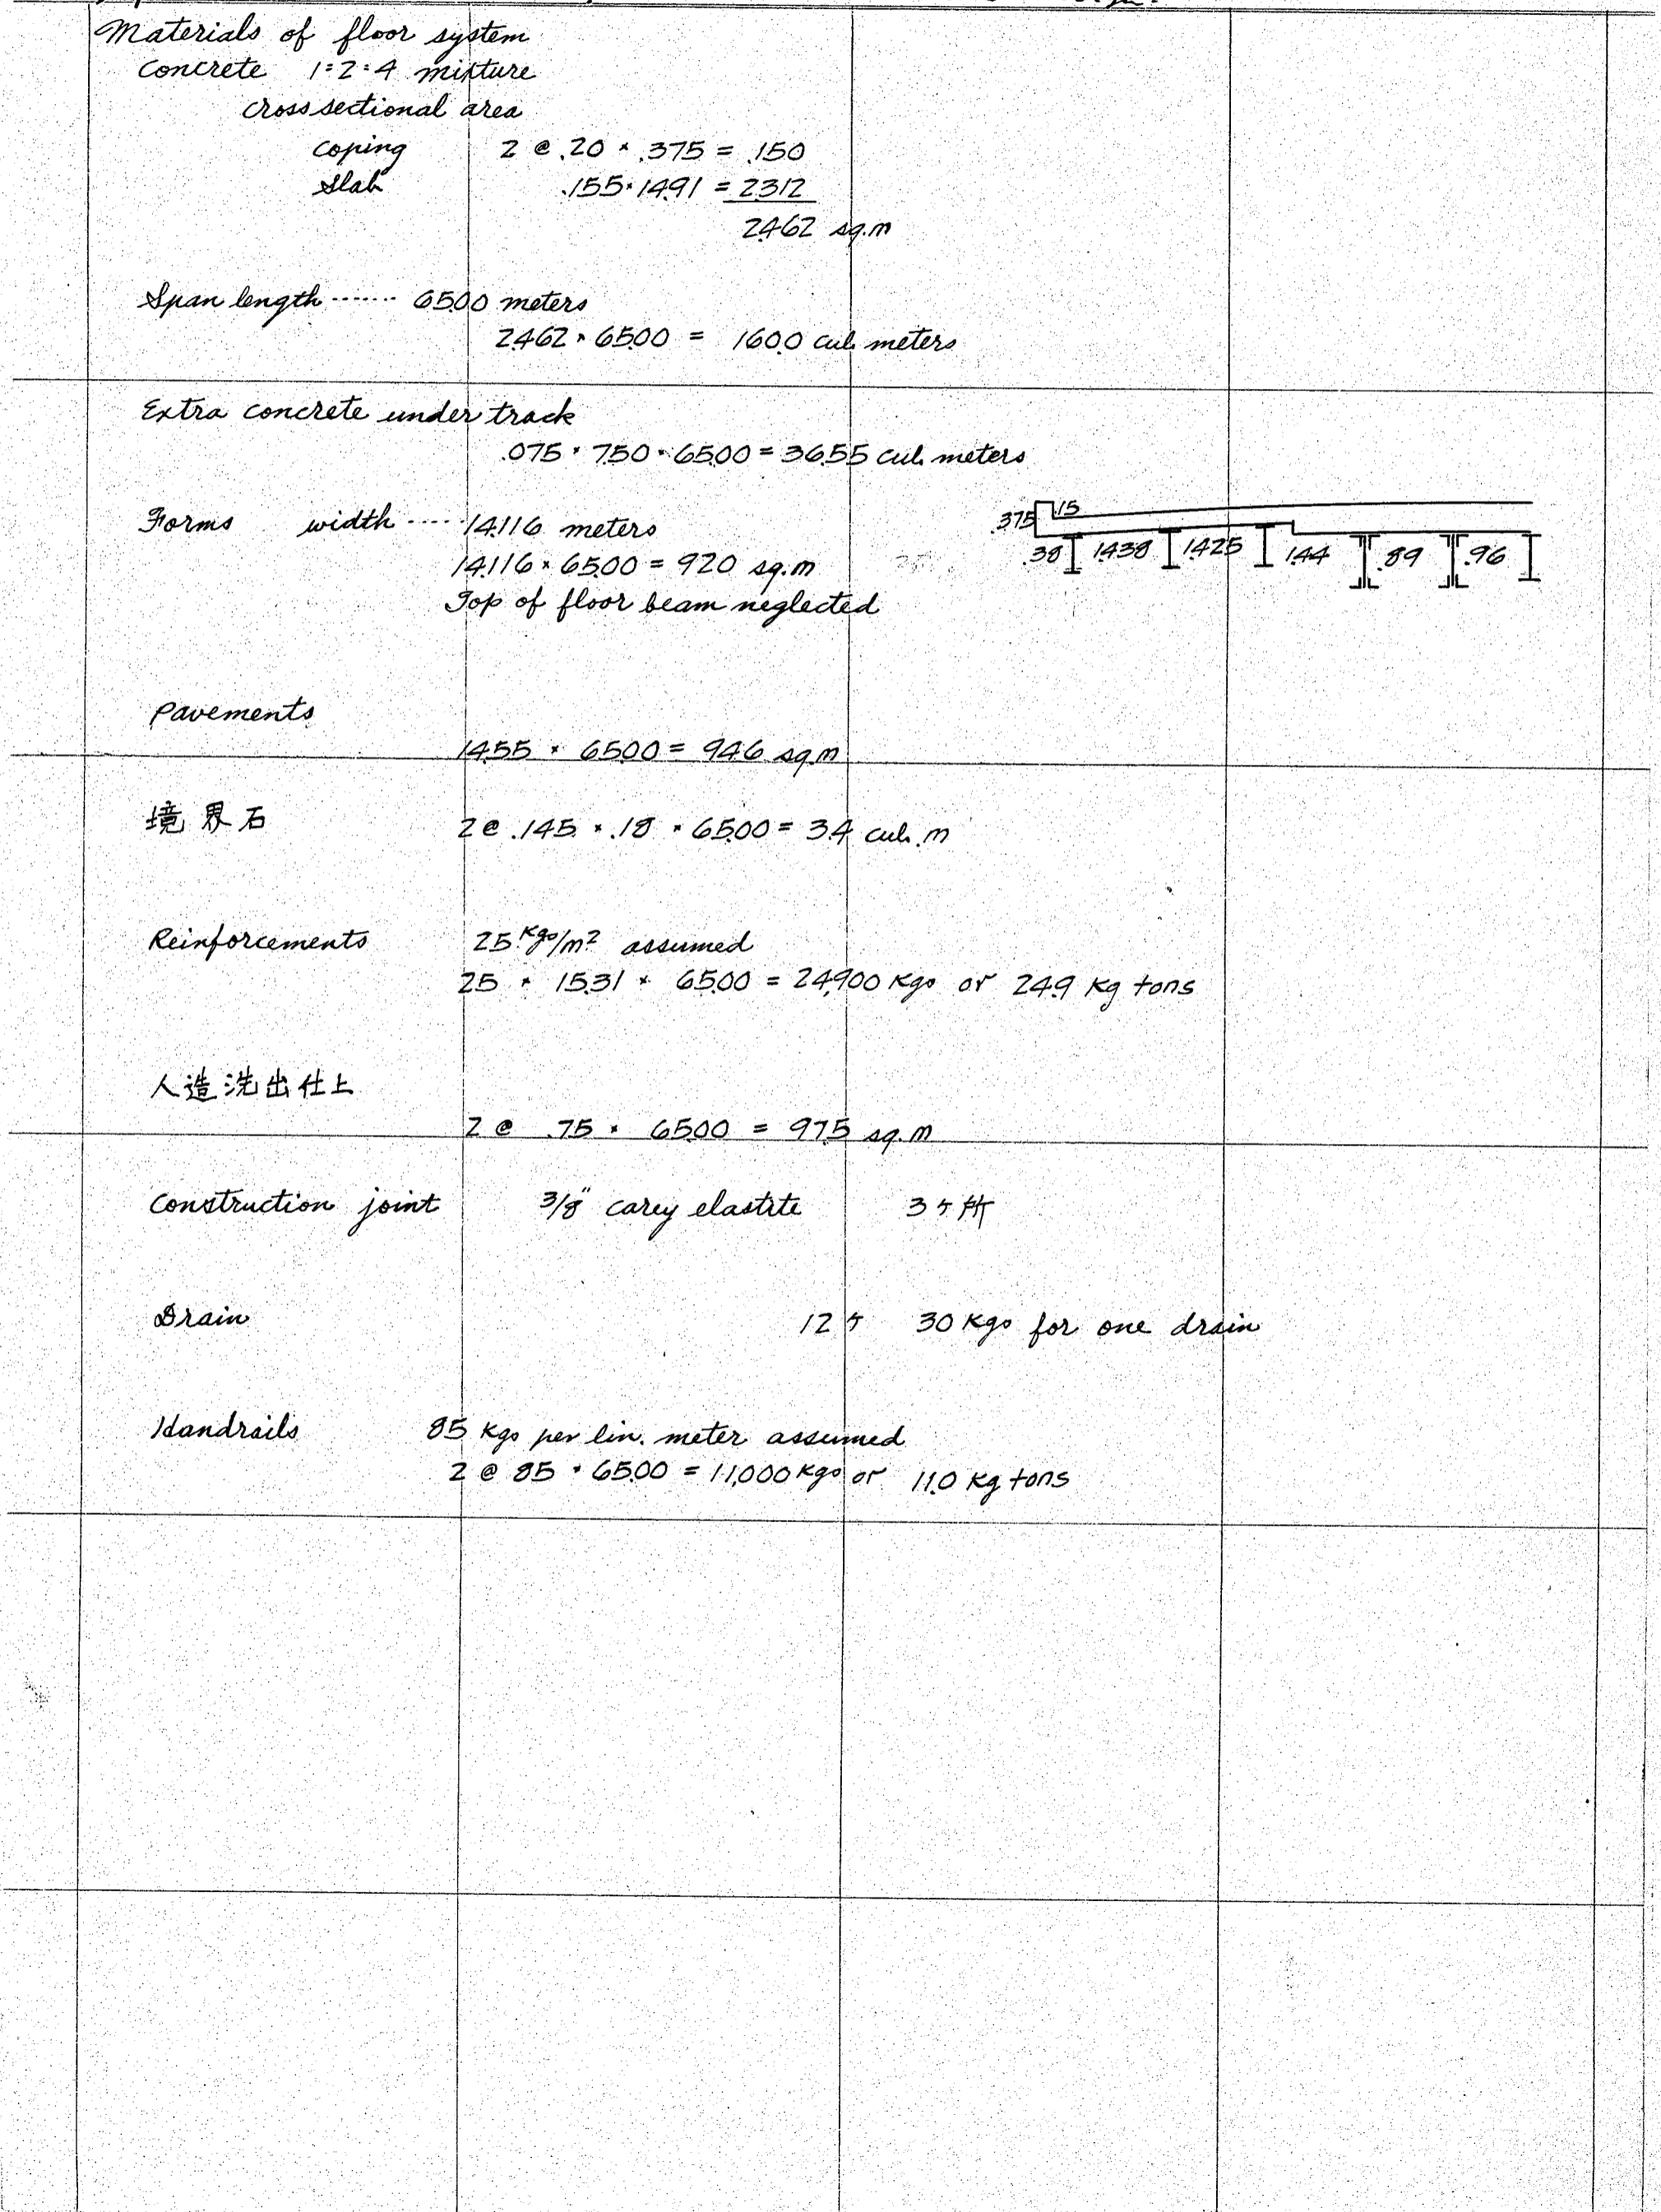 Materials of floor system
Concrete 1:2:4 mixture
cross sectional area
coping 2 @ .20 × .375 = .150
Slab .155 × 14.91 = 2.312
2.462 sq.m
Span length ------- 65.00 meters
2.462 × 65.00 = 160.0 cub meters
Extra concrete under track
.075 × 7.50 × 65.00 = 36.55 cub. meters
Forms width ---- 14.116 meters
14.116 × 65.00 = 920 sq.m
Top of floor beam neglected
.375 .15
.38 1.438 1.425 1.44 .89 .96
Pavements
14.55 × 65.00 = 946 sq.m
境界石 2 @ .145 × .18 × 65.00 = 3.4 cub. m
Reinforcements 25 Kgs/m² assumed
25 × 15.31 × 65.00 = 24,900 Kgs or 24.9 Kg tons
人造洗出仕上
2 @ .75 × 65.00 = 97.5 sq.m
Construction joint 3/8" carey elastite 3ヶ所
Drain 12ヶ 30 Kgs for one drain
Handrails 85 Kgs per lin. meter assumed
2 @ 85 × 65.00 = 11,000 Kgs or 11.0 Kg tons